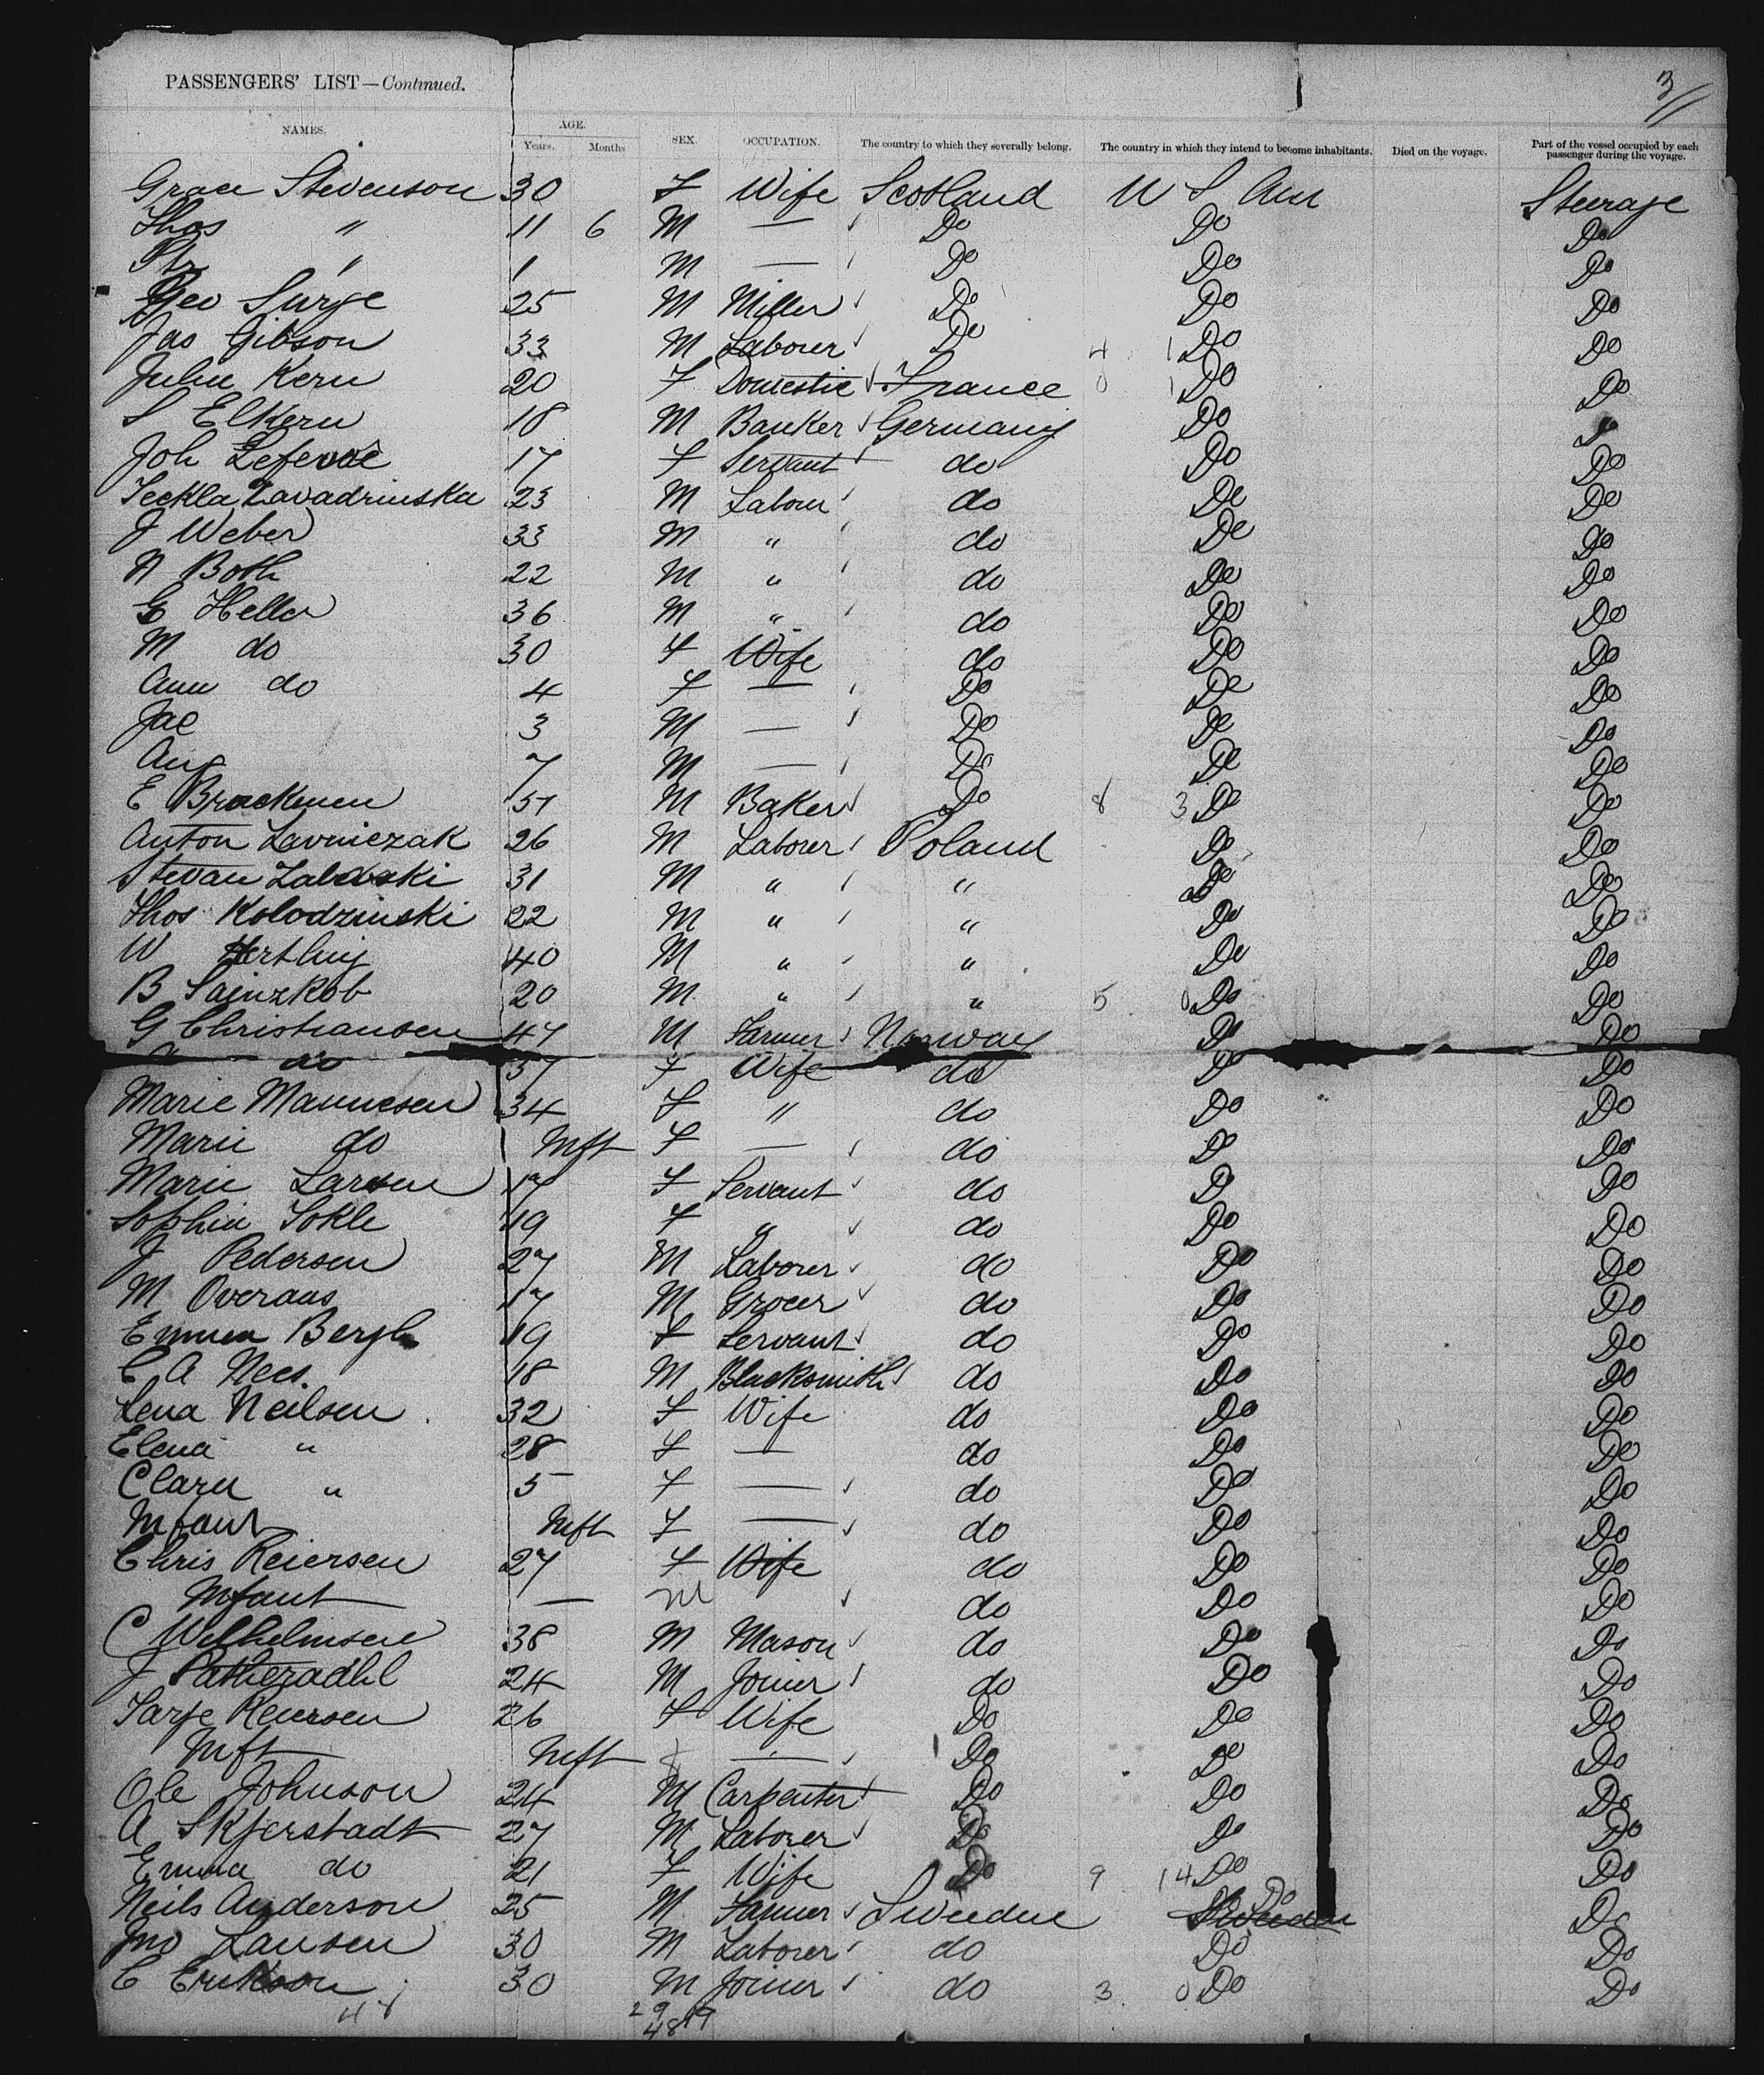 3
PASSENGERS' LIST—Continued.
NAMES. AGE. Years. Months SEX. OCCUPATION. The country to which they severally belong. The country in which they intend to become inhabitants. Died on the voyage. Part of the vessel occupied by each passenger during the voyage.
Grace Stevenson 30 F Wife Scotland U S Am Steerage
Thos " 11 6 M — Do Do Do
" 1 M — Do Do Do
Geo Surge 25 M Miller Do Do Do
Jas Gibson 33 M Laborer Do 4 1 Do Do
Julia Kern 20 F Domestic France 0 1 Do Do
S Elkern 18 M Banker Germany Do Do
Joh Lefevre 17 F Servant do Do Do
Teckla Zavadrinska 23 M Laborer do Do Do
J Weber 33 M " do Do Do
N Both 22 M " do Do Do
G Heller 36 M " do Do Do
M do 30 F Wife do Do Do
Ann do 4 F — Do Do Do
Jac 3 M — Do Do Do
Aug 7 M — Do Do Do
E Brackmen 57 M Baker Do 8 3 Do Do
Anton Lavniczak 26 M Laborer Poland Do Do
Stevan 31 M " " Do Do
Thos Kolodzinski 22 M " " Do Do
W Hertling 40 M " " Do Do
B 20 M " " 5 0 Do Do
G Christiansen 47 M Farmer Norway Do Do
do 57 F Wife do Do Do
Marie Mannesen 34 F " do Do Do
Marie do Inft F — do Do Do
Marie Larsen 17 F Servant do Do Do
Sophia Tokle 19 F " do Do Do
J Pedersen 27 M Laborer do Do Do
M Overaas 17 M Grocer do Do Do
Emma Bergh 19 F Servant do Do Do
C A Nees. 18 M Blacksmith do Do Do
Lena Neilsen 32 F Wife do Do Do
Elena " 28 F — do Do Do
Clara " 5 F — do Do Do
Infant Inft F — do Do Do
Chris Reiersen 27 F Wife do Do Do
Infant — M do Do Do
C Wilhelmsen 38 M Mason do Do Do
J 24 M Joiner do Do Do
Tarje Reiersen 26 F Wife Do Do Do
Inft Inft f — Do Do Do
Ole Johnson 24 M Carpenter Do Do Do
A Skjerstadt 27 M Laborer Do Do Do
Emma do 21 F Wife Do 9 14 Do Do
Neils Anderson 25 M Farmer Sweden Sweden Do Do
Jno Lausen 30 M Laborer do Do Do
C Erikson 30 M Joiner do 3 0 Do Do
48 29 19
48